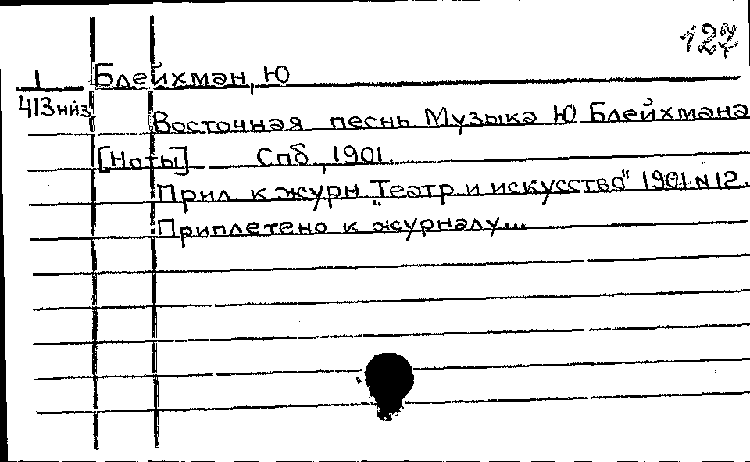 127
1 Блейхман, Ю
413низ
Восточная песнь Музыка Ю Блейхмана
[Ноты] Спб, 1901.
Прил. к журн „Театр и искусство" 1901. N 12.
Приплетено к журналу...